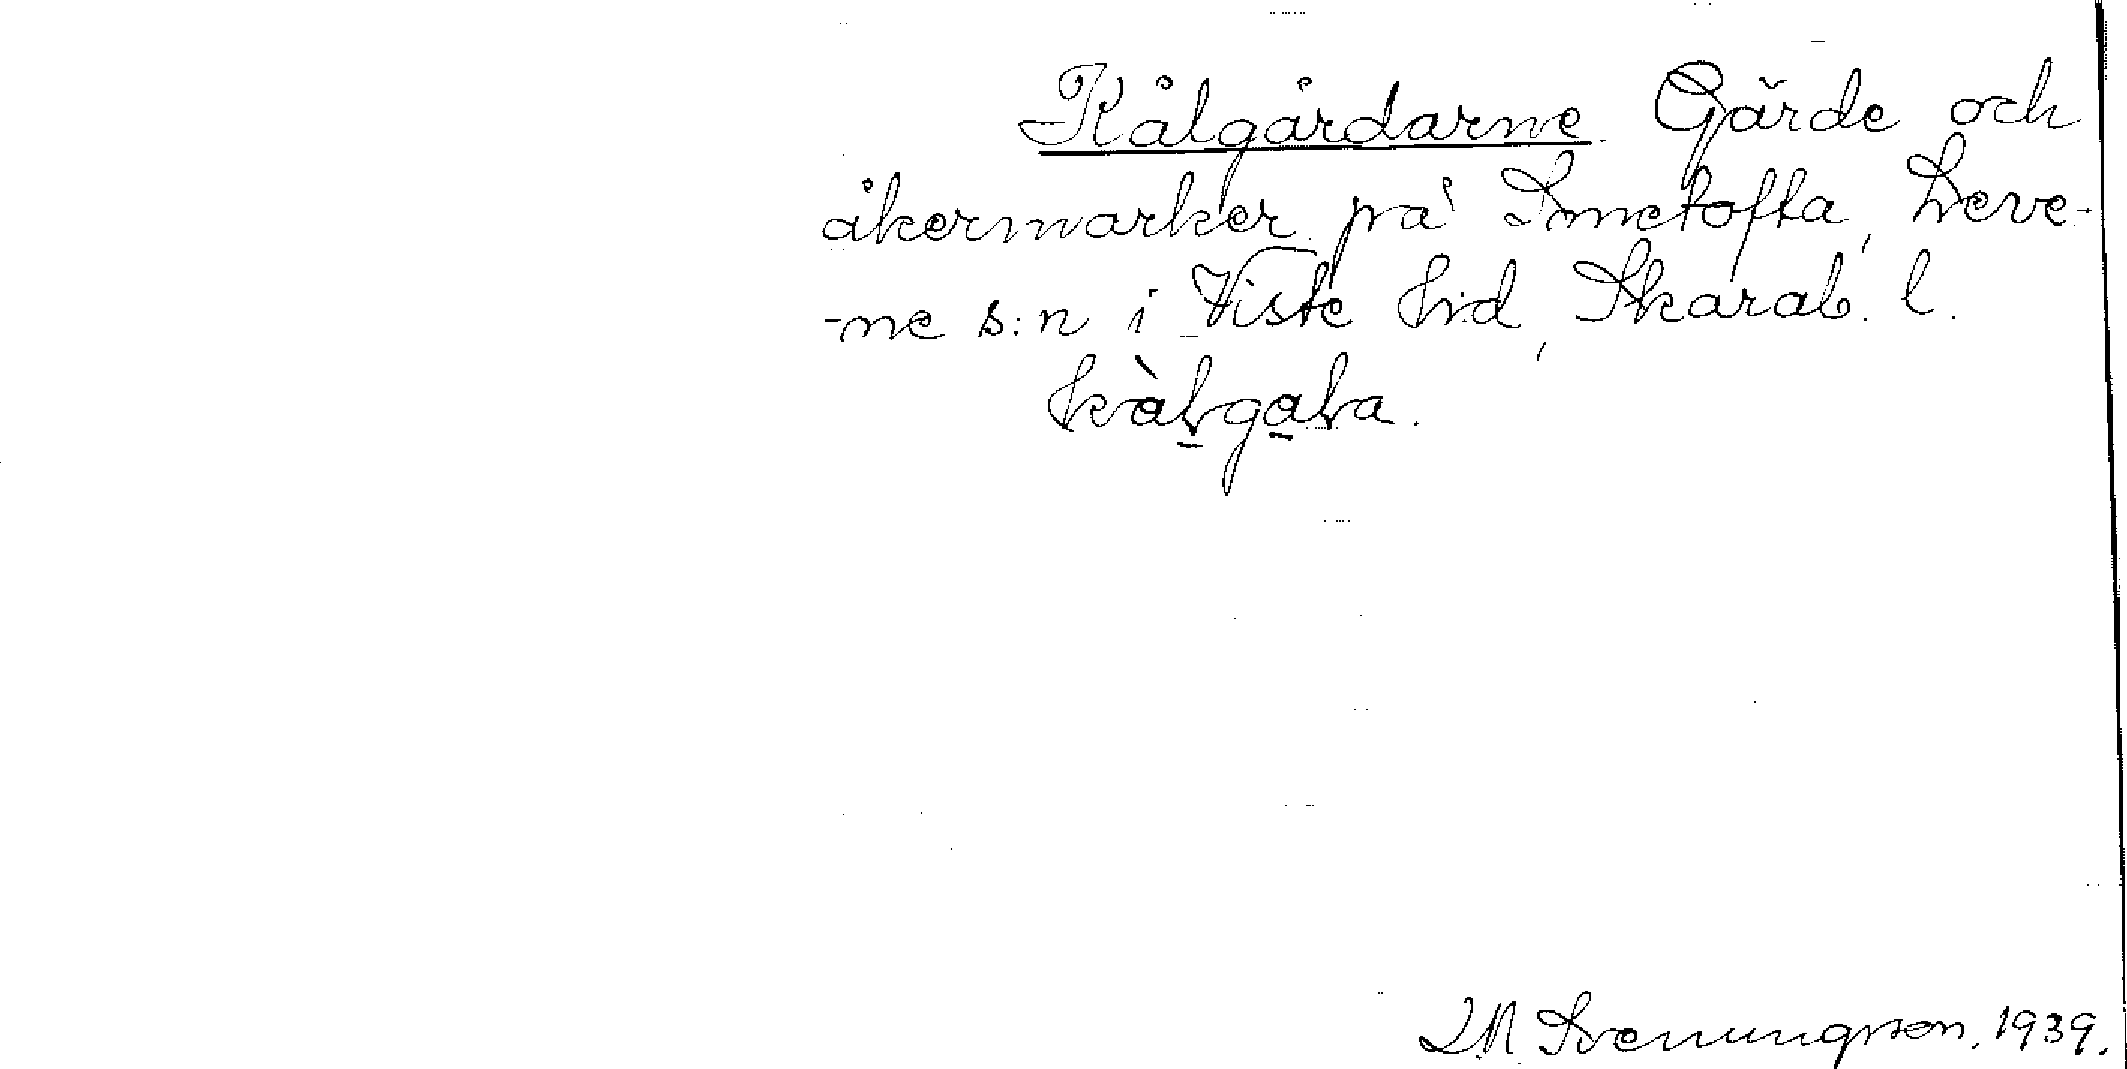 Kålgårdarne. Gärde och
åkermarker på Smetofta, Leve-
-ne s:n i Viste hd, Skarab. l.
kàlgala.
Svenungsson. 1939.